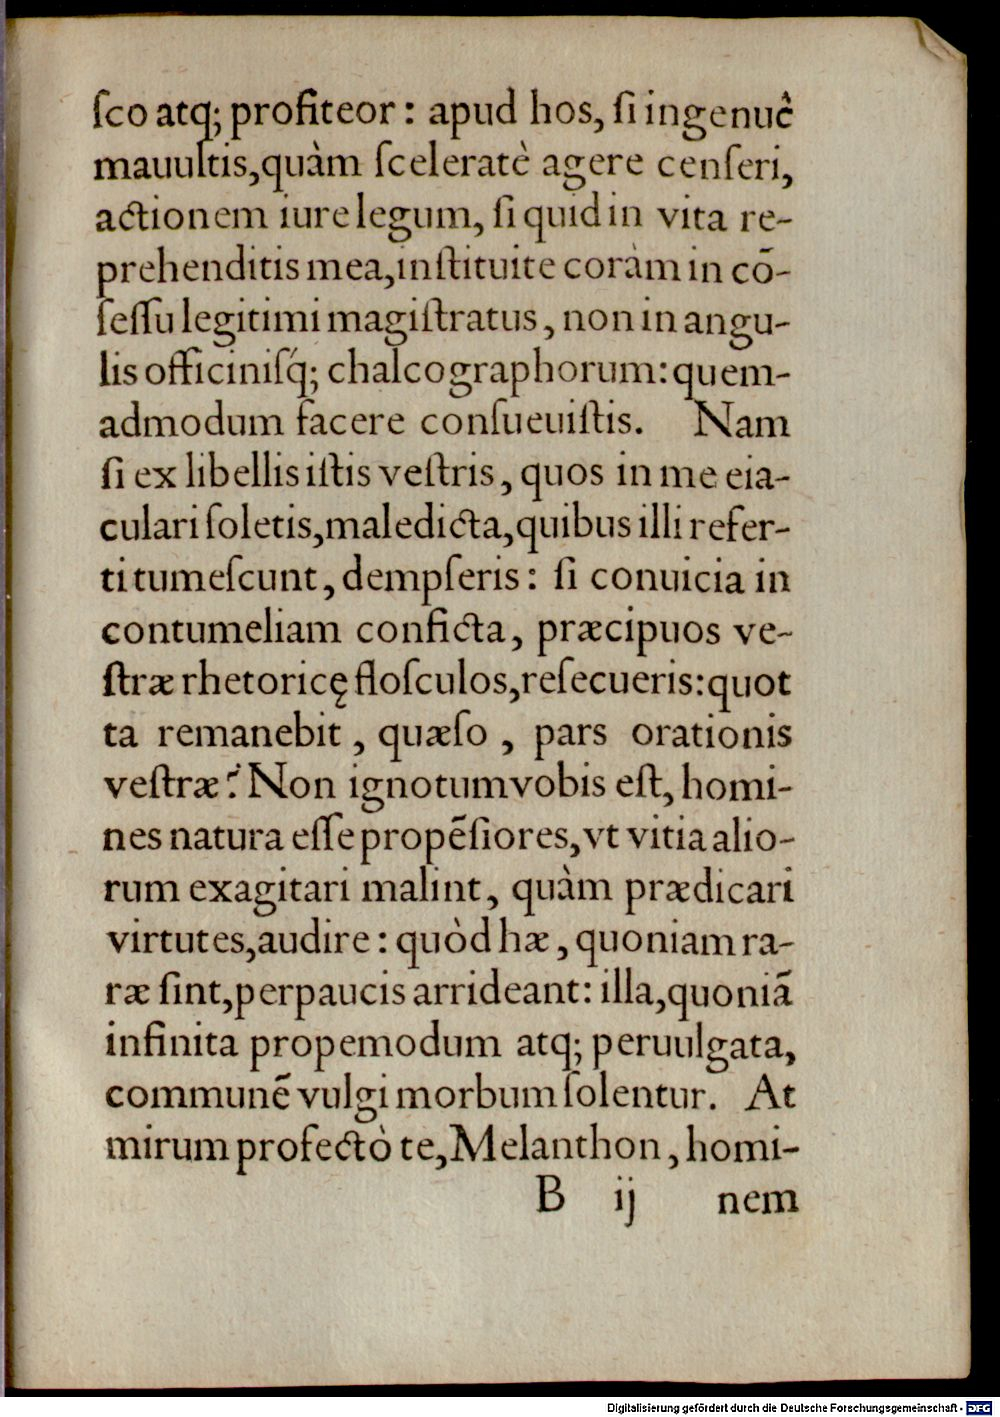 ſco atq; profiteor : apud hos, ſi ingenuè
mauultis,quàm ſceleratè agere cenſeri,
actionem iure legum, ſi quid in vita re-
prehenditis mea,inſtituite coràm in cō-
ſeſſu legitimi magiſtratus, non in angu-
lis officiniſq́; chalcographorum:quem-
admodum facere conſueuiſtis. Nam
ſi ex libellis iſtis veſtris, quos in me eia-
culari ſoletis,maledicta,quibus illi refer-
ti tumeſcunt, dempſeris: ſi conuicia in
contumeliam conficta, præcipuos ve-
ſtræ rhetoricę floſculos,reſecueris:quot
ta remanebit, quæſo , pars orationis
veſtræ? Non ignotum vobis eſt, homi-
nes natura eſſe propēſiores,vt vitia alio-
rum exagitari malint, quàm prædicari
virtutes,audire: quòd hæ, quoniam ra-
ræ ſint,perpaucis arrideant: illa,quoniā
infinita propemodum atq; peruulgata,
communē vulgi morbum ſolentur. At
mirum profectò te,Melanthon, homi-
B ij nem
Digitalisierung gefördert durch die Deutsche Forschungsgemeinschaft - DFG